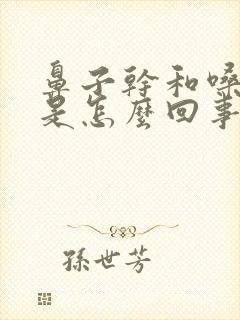 鼻子幹和嗓
是怎麼回事
孫世芳